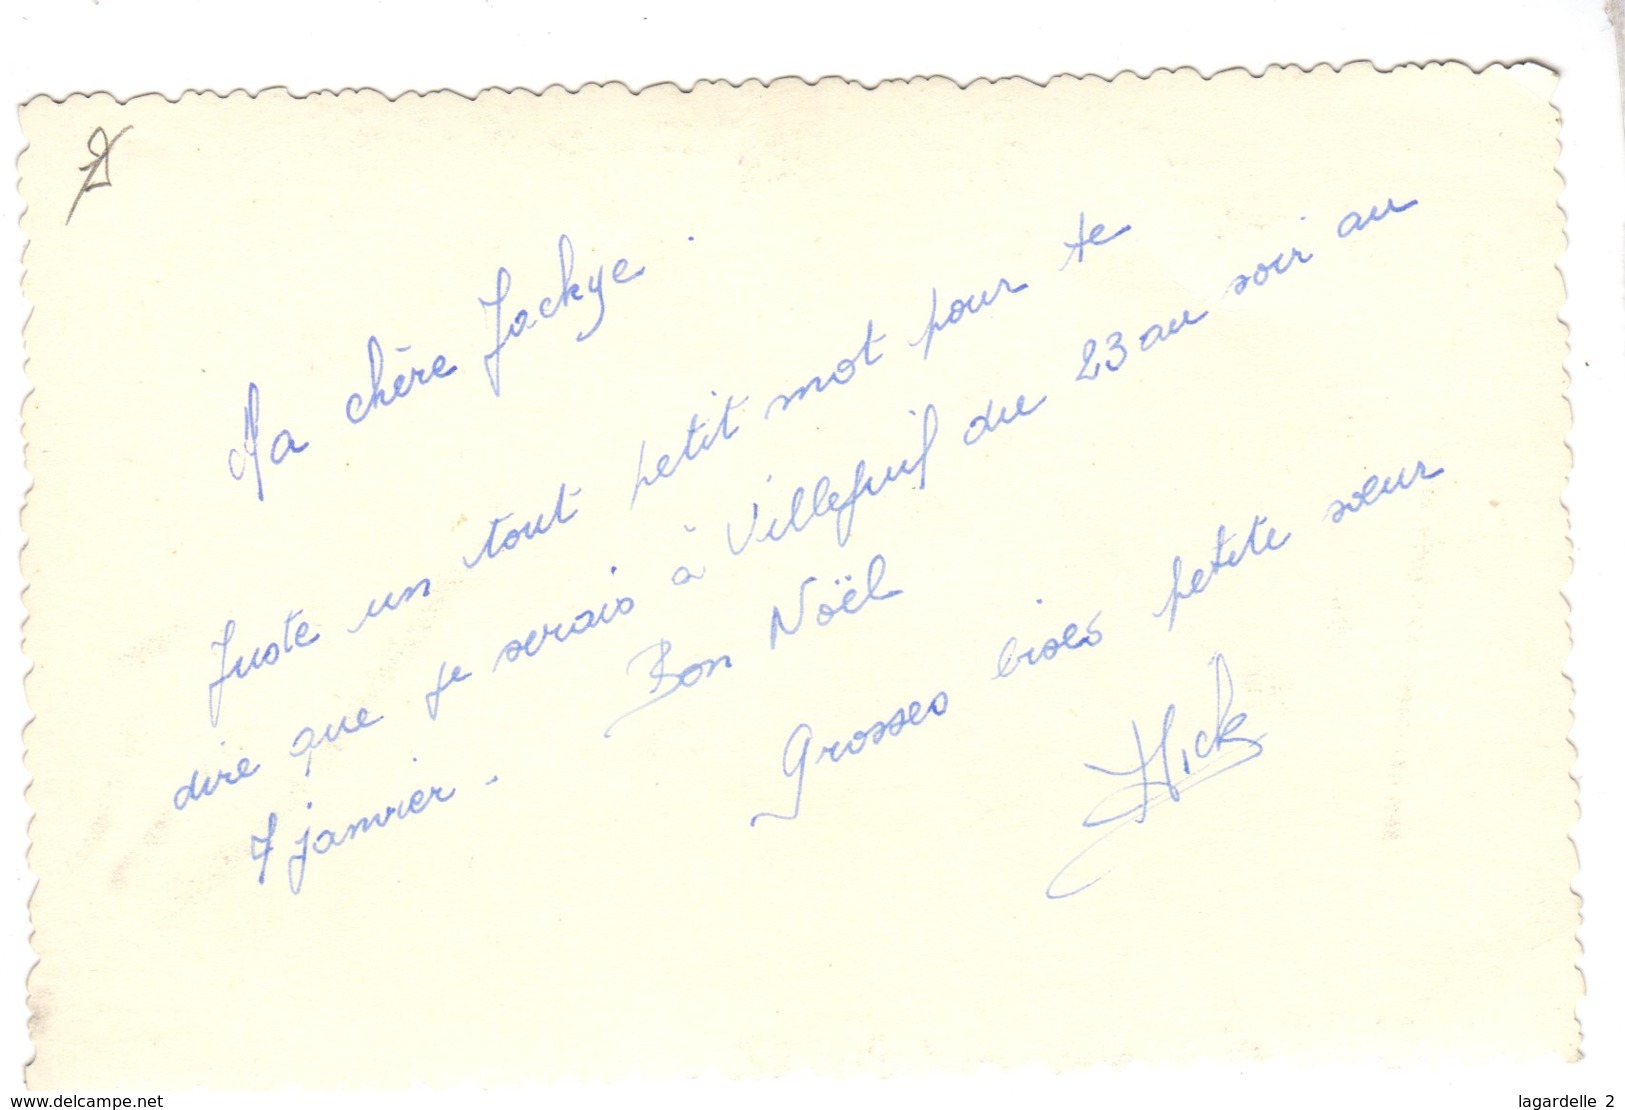 Ma chère Jackye.
Juste un tout petit mot pour te
dire que je serais à Villejuif du 23 au soir au
7 janvier -
Bon Noël
Grosses bises petite sœur
Mick
www.delcampe.net
lagardelle 2